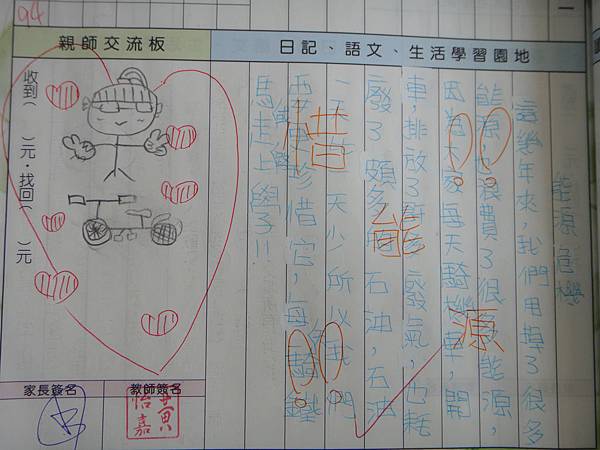 94
一
日記、語文、生活學習園地
能源危機
這幾年來，我們用掉了很多
能源，也浪費了很多能源，
因為大家每天騎機車，開
車，排放了許多廢氣，也耗
廢了頗多 石油，石油
一 天 天少 所以我們
要更珍惜它，每 騎鐵
馬走上學了!!
源
能
惜
親師交流板
收到( )元‧找回( )元
家長簽名
教師簽名
黃怡嘉